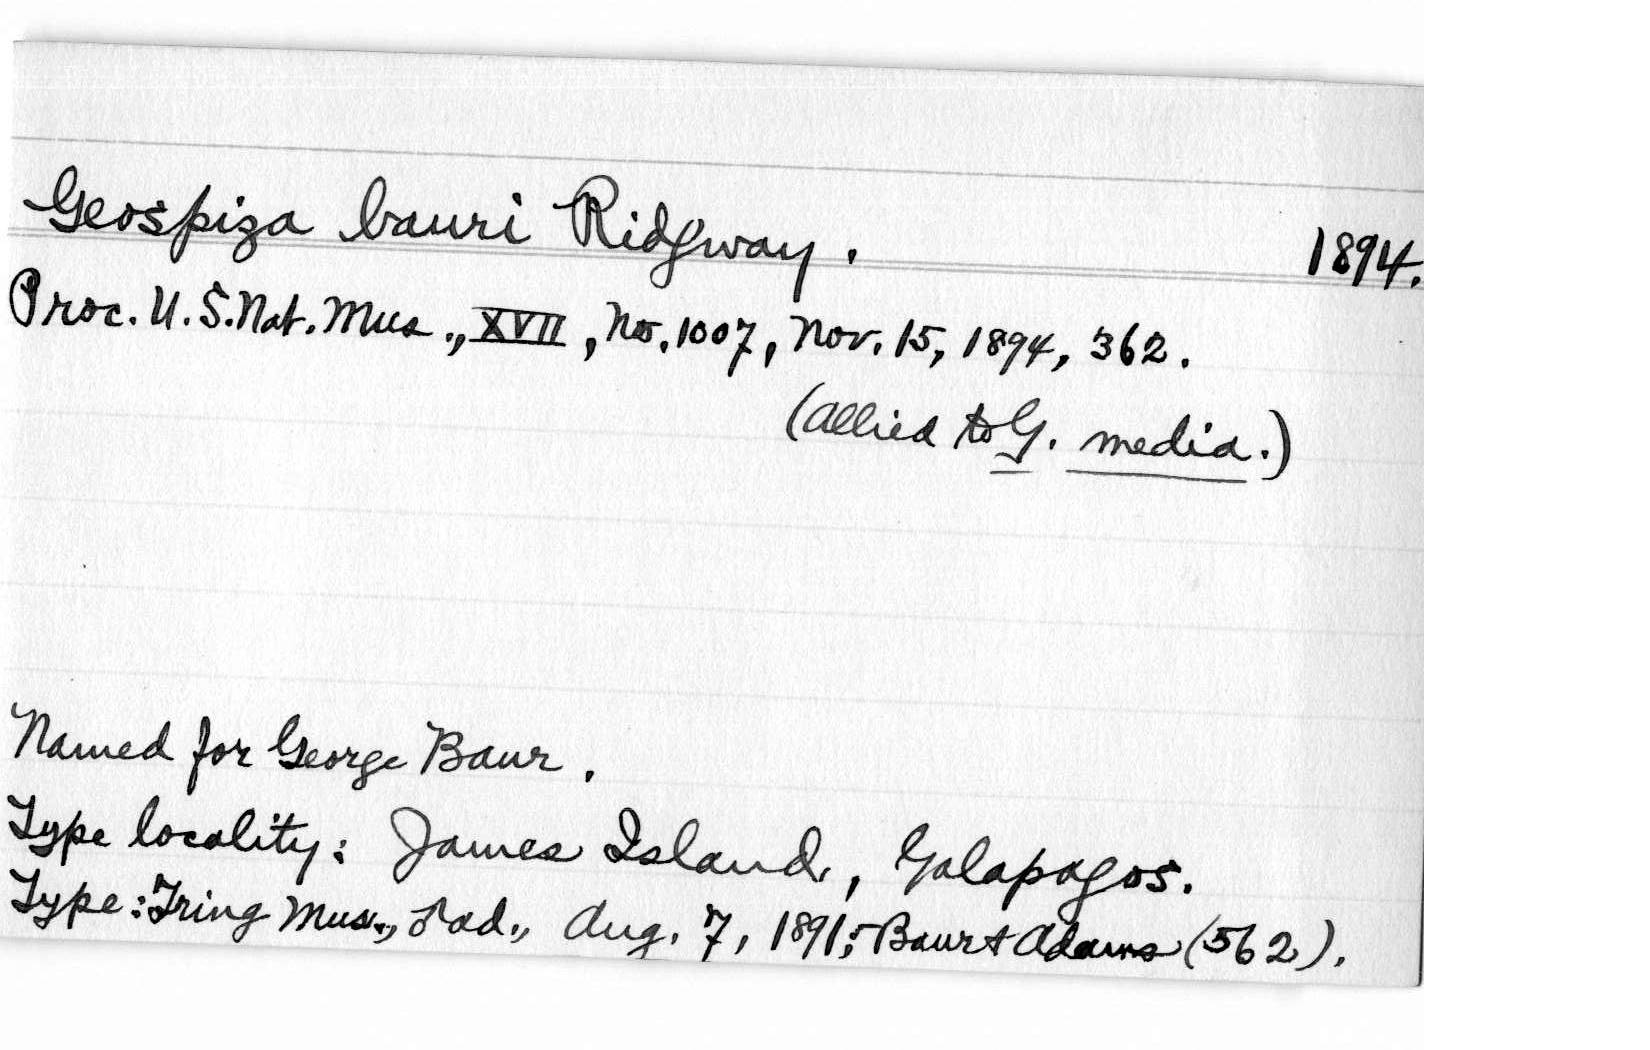 Geospiza bauri Ridgway. 1894.
Proc. U.S. Nat. Mus., XVII, No. 1007, Nov. 15, 1894, 362.
(Allied to G. media.)
Named for George Baur.
Type locality: James Island, Galapagos.
Type: Tring Mus., ♂ad., Aug. 7, 1891; Baur & Adams (562).